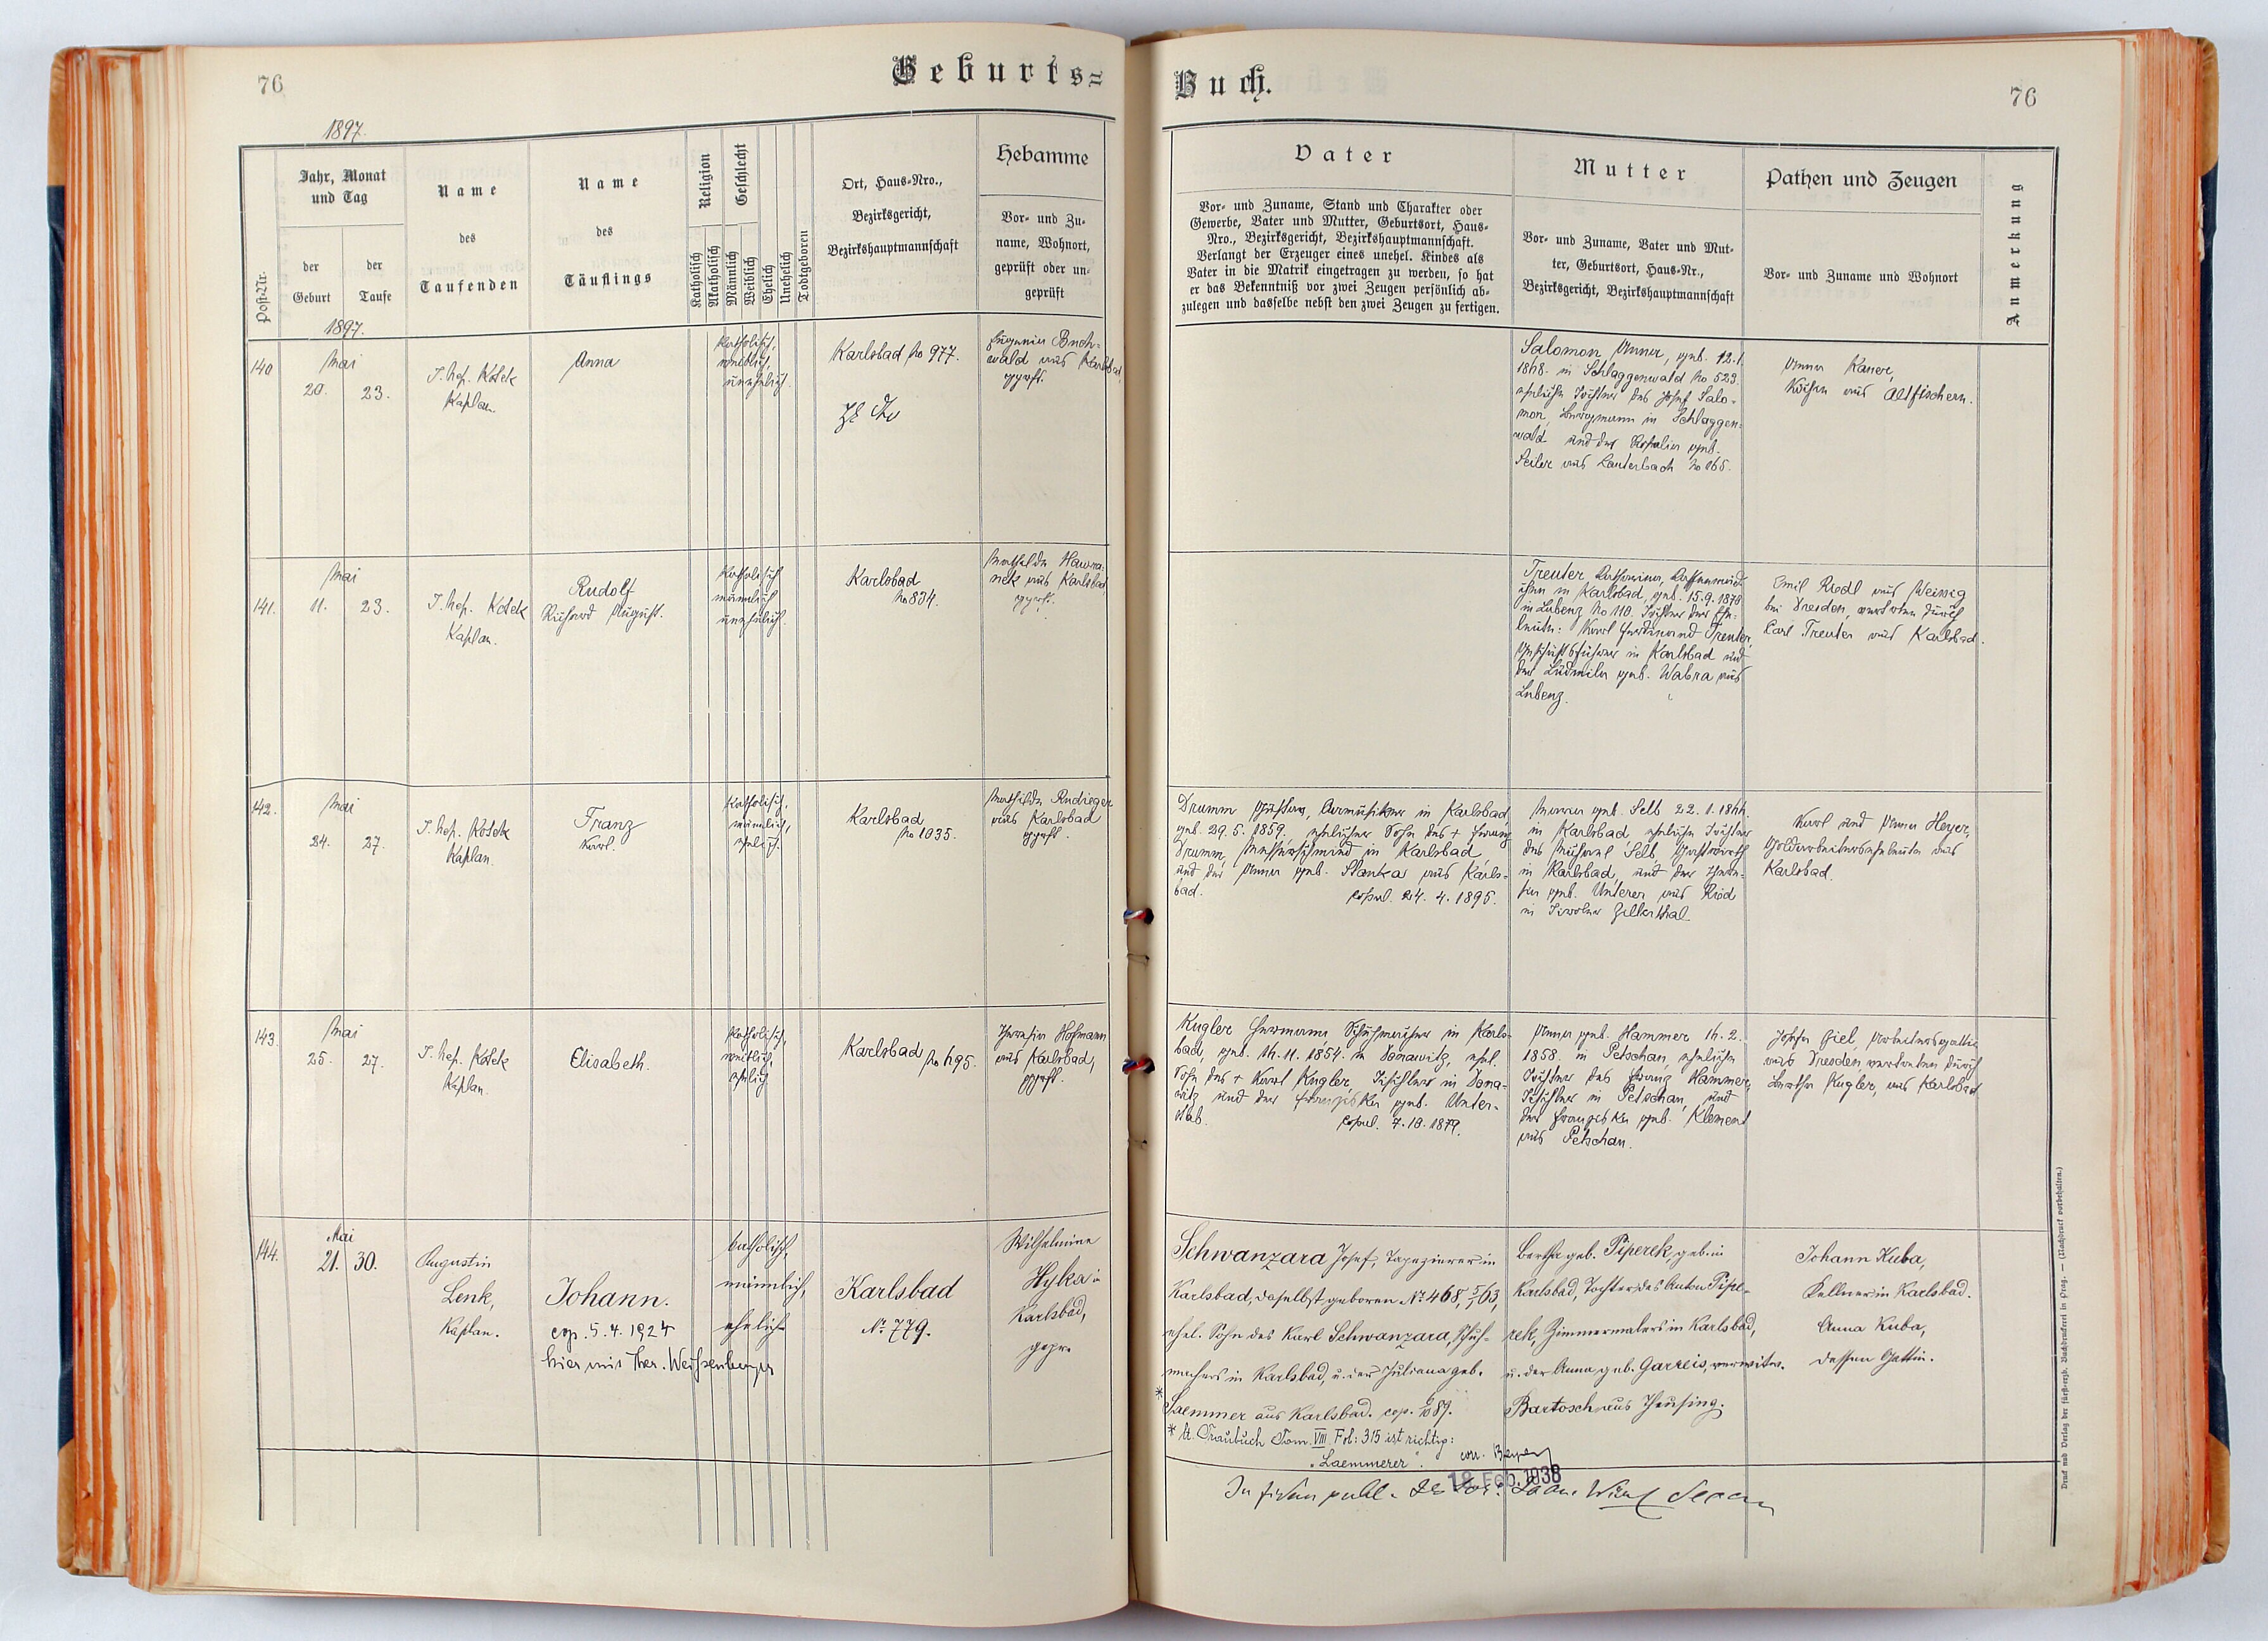 76
Geburts=
1897.
Post-Nr.
Jahr, Monat
und Tag
der
Geburt
der
Taufe
Name
des
Taufenden
Name
des
Täuflings
Religion
Katholisch
Akatholisch
Geschlecht
Männlich
Weiblich
Ehelich
Unehelich
Todtgeboren
Ort, Haus-Nro.,
Bezirksgericht,
Bezirkshauptmannschaft
Hebamme
Vor- und Zu-
name, Wohnort,
geprüft oder un-
geprüft
1897.
140
Mai
20. 23.
Kosek
Kaplan.
Anna
katholisch,
weiblich,
unehelich.
Karlsbad No 977.
Eugenia Buch-
wald aus Karlsbad
geprft.
141.
Mai
11. 23.
Kosek
Kaplan.
Rudolf
Richard August.
katholisch
männlich
unehelich.
Karlsbad
No 834.
Mathilde Hawra-
nek aus Karlsbad,
geprft.
142.
Mai
24. 27.
Kosek
Kaplan.
Franz
Karl.
katholisch,
männlich,
ehelich.
Karlsbad
No 1035.
Mathilde Rudieger
aus Karlsbad
geprft.
143.
Mai
25. 27.
Kosek
Kaplan.
Elisabeth.
katholisch,
weiblich,
ehelich.
Karlsbad No
Theresia Hofmann
aus Karlsbad,
geprft.
144.
Mai
21. 30.
Augustin
Lenk,
Kaplan.
Johann.
cop. 5. 4. 1924
hier mit Ther. Weißenberger
katholisch,
männlich,
ehelich
Karlsbad
No 779.
Wilhelmine
Hyka in
Karlsbad,
gepr.
Buch.
76
Vater
Vor- und Zuname, Stand und Charakter oder
Gewerbe, Vater und Mutter, Geburtsort, Haus-
Nro., Bezirksgericht, Bezirkshauptmannschaft.
Verlangt der Erzeuger eines unehel. Kindes als
Vater in die Matrik eingetragen zu werden, so hat
er das Bekenntniß vor zwei Zeugen persönlich ab-
zulegen und dasselbe nebst den zwei Zeugen zu fertigen.
Mutter
Vor- und Zuname, Vater und Mut-
ter, Geburtsort, Haus-Nr.,
Bezirksgericht, Bezirkshauptmannschaft
Pathen und Zeugen
Vor- und Zuname und Wohnort
Anmerkung
Salomon Anna, geb. 12.1.
in Schlaggenwald No 523.
eheliche Tochter des Josef Salo-
mon, Bergmann in Schlaggen-
wald und der Rosalia geb.
Seiler aus Lauterbach No 165.
Anna Kauer,
Köchin aus Altfischern.
Treuter Katharina,
in Karlsbad, geb. 15.9.1878
in Lubenz No 110. Tochter der Ehe-
leute: Karl Ferdinand Treuter,
Geschäftsführer in Karlsbad und
der Ludmila geb. Wabra aus
Lubenz.
Emil Riedl aus Weissig
bei Dresden, vertreten durch
Carl Treuter aus Karlsbad.
Drumm Gustav, Curmusiker in Karlsbad,
geb. 29. 5. 1859. ehelicher Sohn des + Franz
Drumm, Messerschmied in Karlsbad,
und der Anna geb. Stanka aus Karls-
bad.
copul. 24. 4. 1895.
Maria geb. Selb
in Karlsbad, eheliche Tochter
des Michael Selb, Gastwirth
in Karlsbad, und der There-
sia geb. Unterer aus Ried
in Tiroler Zillerthal.
Karl und Anna Heyer,
Goldarbeiterseheleute aus
Karlsbad.
Kugler Hermann, Schuhmacher in Karls-
bad, geb. 1854. in Donawitz, ehel.
Sohn des + Karl Kugler, Tischler in Dona-
witz und der Franziska geb. Unter-
stab.
copul. 7. 10. 1879.
Anna geb. Hammer
1858. in Petschau, eheliche
Tochter des Franz Hammer,
Tischler in Petschau, und
der Franziska geb. Klement
aus Petschau.
Josefa Giel, Arbeitersgattin
aus Dresden, vertreten durch
Bertha Kugler, aus Karlsbad
Schwanzara Josef, Tapezierer in
Karlsbad, daselbst geboren No 468,
ehel. Sohn des Karl Schwanzara, Schuh-
machers in Karlsbad, u. der Juliana geb.
* Laemmer aus Karlsbad. cop.
* Lt. Traubuch Tom. VIII Fol: 315 ist richtig:
"Laemmerer".
Bertha geb. Piperek, geb. in
Karlsbad, Tochter des Anton Pipe-
rek, Zimmermalers in Karlsbad,
u. der Anna geb. Garreis, verwitw.
Bartosch aus Theusing.
Johann Kuba,
Kellner in Karlsbad.
Anna Kuba,
dessen Gattin.
18. Feb. 1938
Druck und Verlag der fürst-erzb. Buchdruckerei in Prag. — (Nachdruck vorbehalten.)